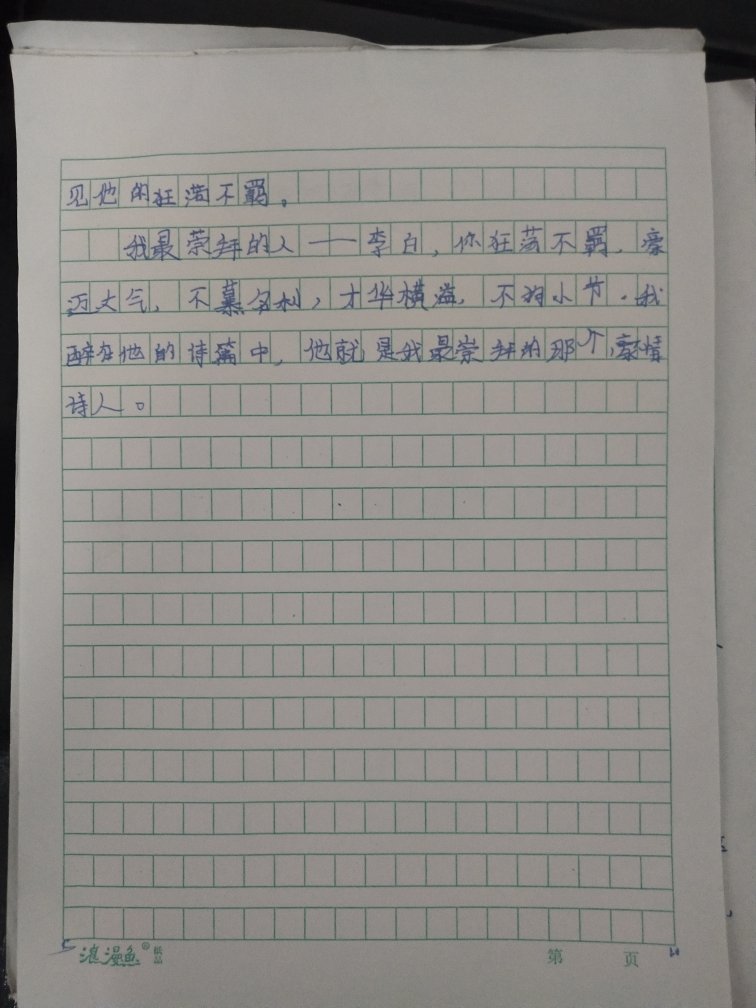 见他的狂荡不羁。
我最荣拜的人——李白，你狂荡不羁，豪
迈大气，不慕名利，才华横溢，不拘小节。我
醉在他的诗篇中，他就是我最崇拜的那个豪情
诗人。
浪漫鱼®
第 页